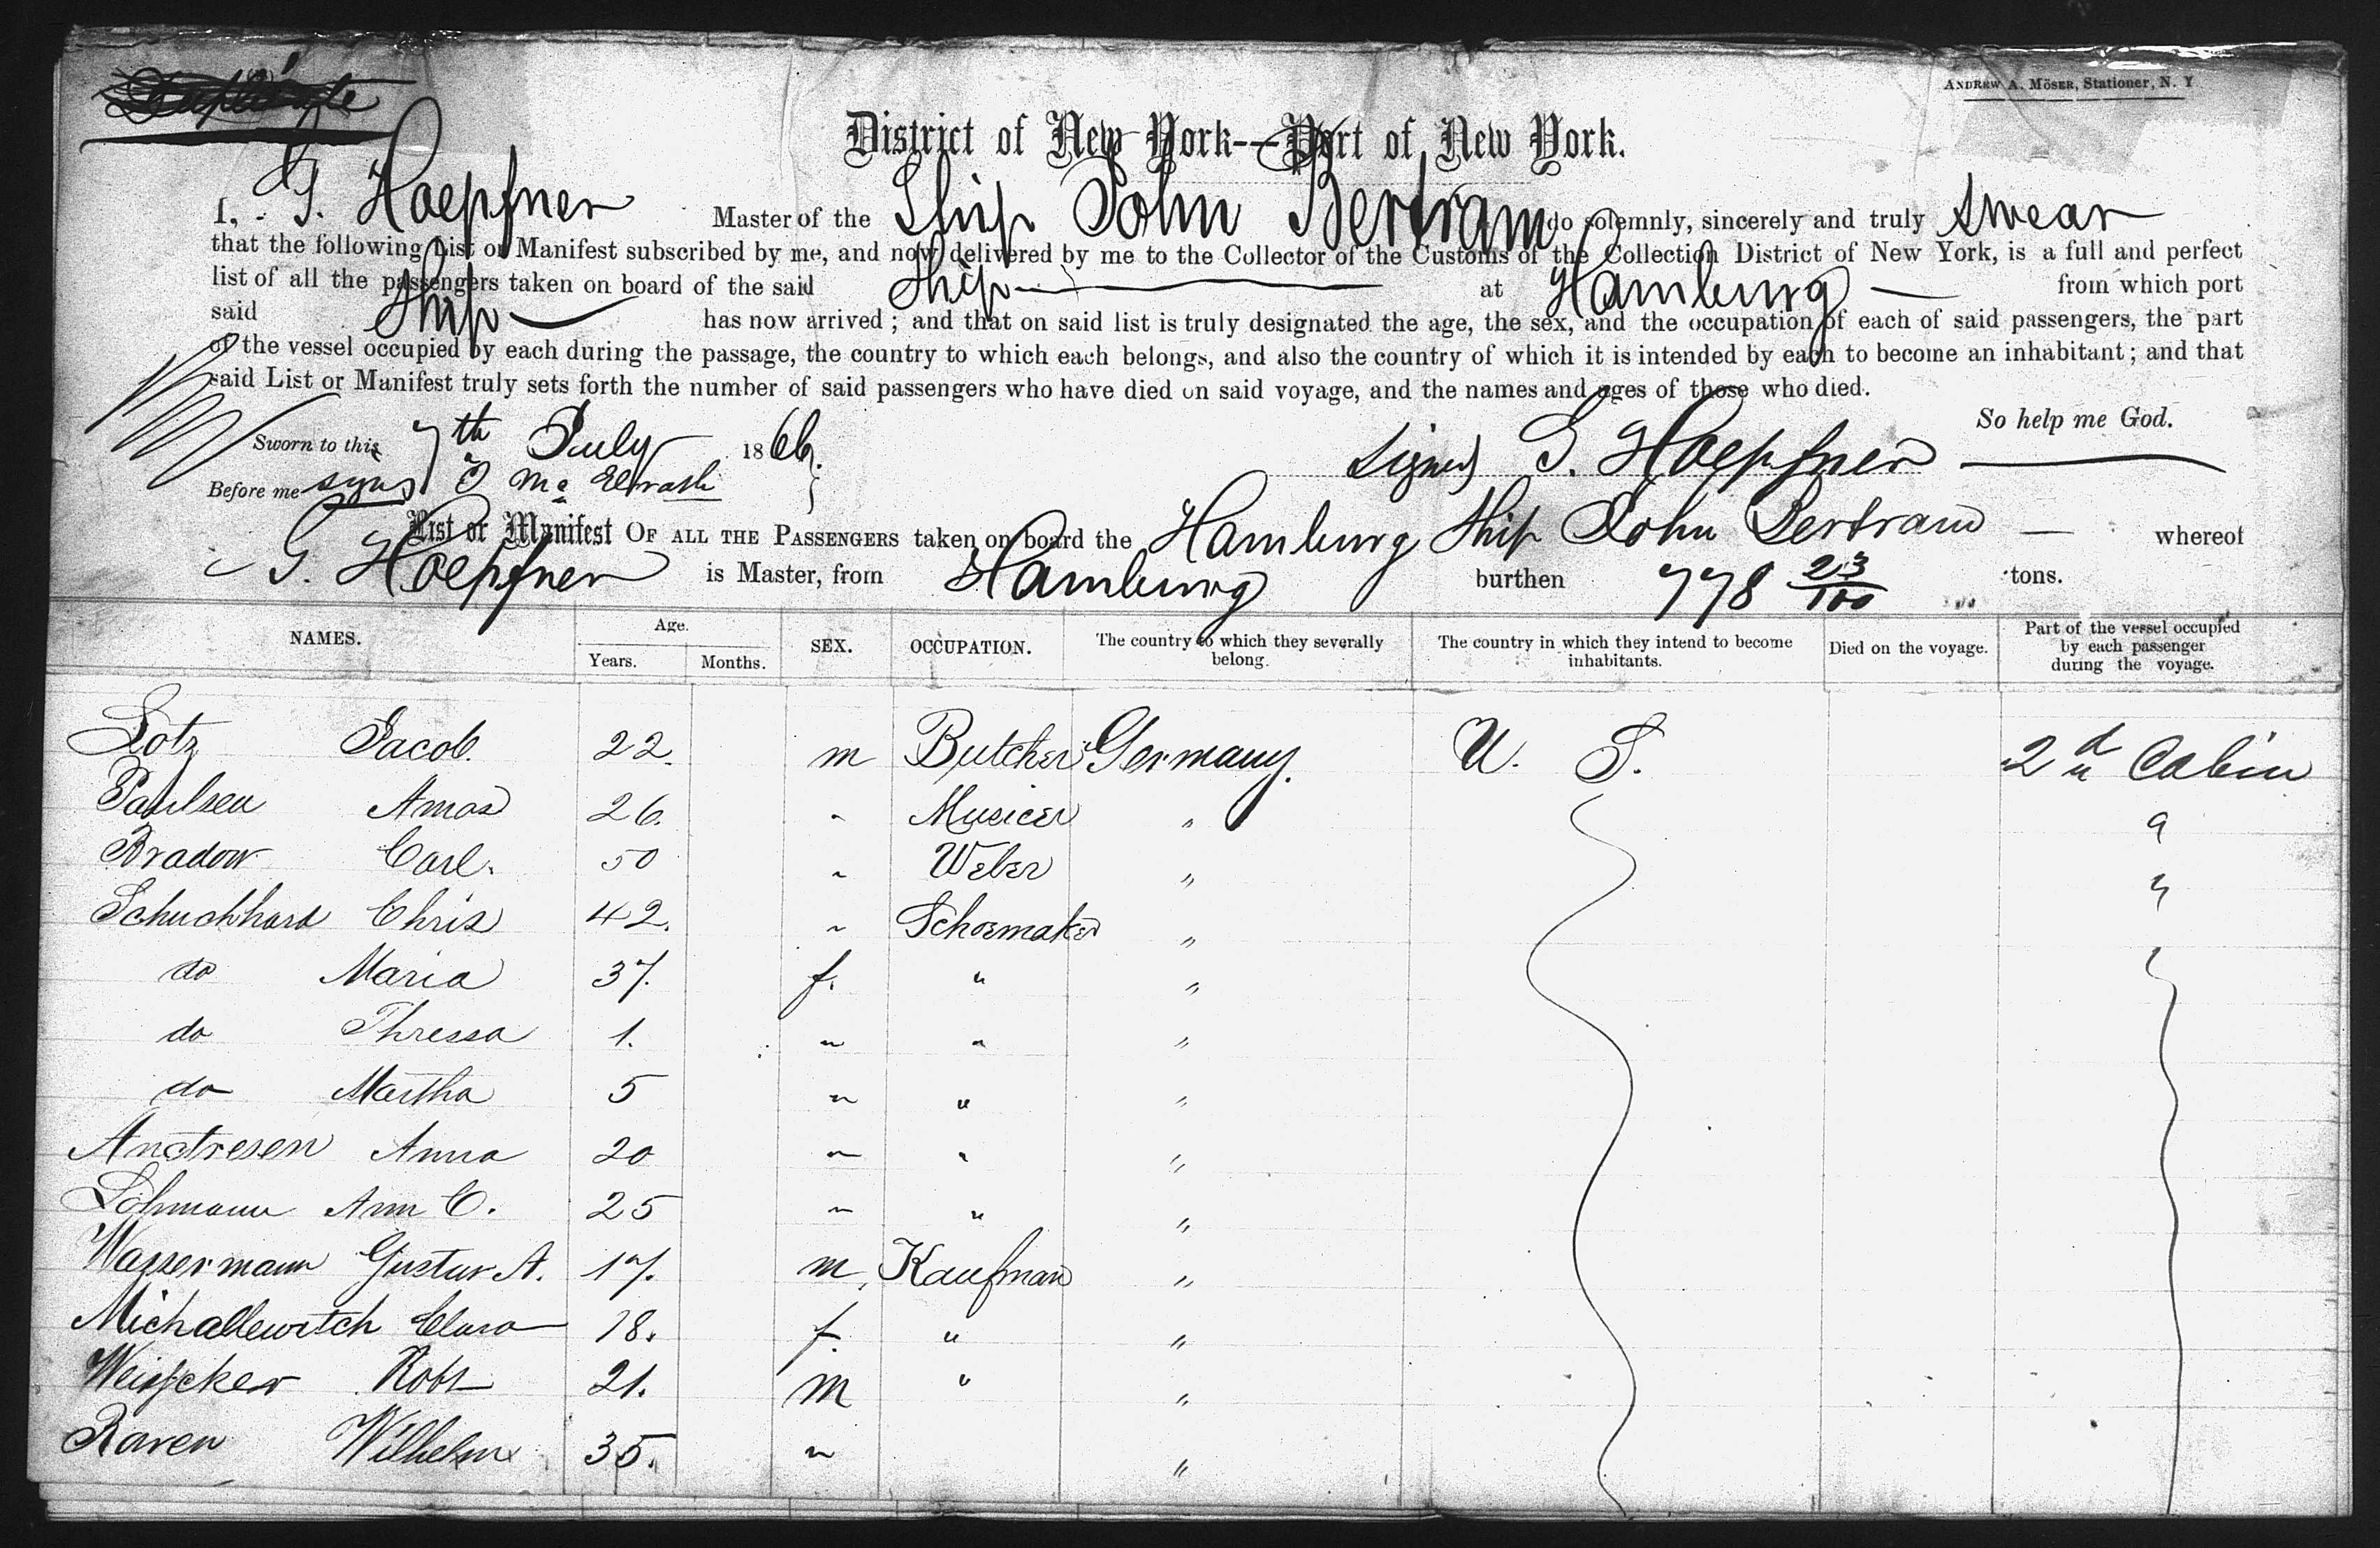 Duplicate
ANDREW A. MÖSER, Stationer, N. Y
District of New York--Port of New York.
I, G. Hoepfner Master of the Ship John Bertram do solemnly, sincerely and truly swear
that the following List or Manifest subscribed by me, and now delivered by me to the Collector of the Customs of the Collection District of New York, is a full and perfect
list of all the passengers taken on board of the said Ship at Hamburg from which port
said Ship has now arrived; and that on said list is truly designated the age, the sex, and the occupation of each of said passengers, the part
of the vessel occupied by each during the passage, the country to which each belongs, and also the country of which it is intended by each to become an inhabitant; and that
said List or Manifest truly sets forth the number of said passengers who have died on said voyage, and the names and ages of those who died.
So help me God.
Sworn to this 7th July 1866. Signed G. Hoepfner
Before me Mc Elrath
List or Manifest OF ALL THE PASSENGERS taken on board the Hamburg Ship John Bertram whereof
G. Hoepfner is Master, from Hamburg burthen 778 23/100 tons.
NAMES. Age. Years. Months. SEX. OCCUPATION. The country to which they severally belong. The country in which they intend to become inhabitants. Died on the voyage. Part of the vessel occupied by each passenger during the voyage.
Lotz Jacob. 22. m Butcher Germany. U. S. 2d Cabin
Paulsen Amos 26. " Musicer " "
Bradow Carl. 50 " Weber " "
Schuchhard Chris 42. " Schoemaker "
do Maria 37. f. " "
do Thressa 1. " " "
do Martha 5 " " "
Andresen Anna 20 " " "
Lohmann Ann C. 25 " " "
Wassermann Gustav A. 17. m Kaufman "
Michallewitch Clara 18. f. " "
Robt 21. m " "
Raven Wilhelm 35. " "